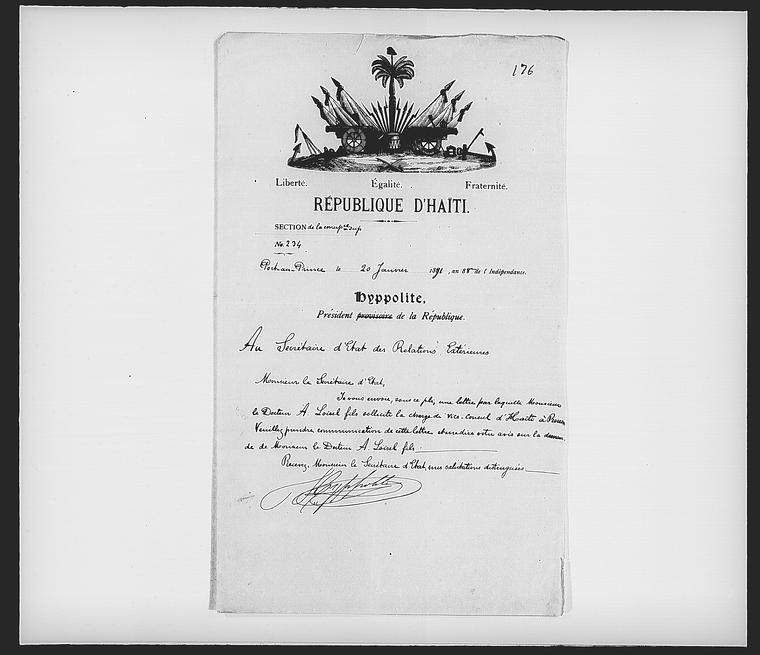 176
Liberté. Égalité. Fraternité.
RÉPUBLIQUE D'HAÏTI.
SECTION de la corresp.ce sup.
No. 234
Port-au-Prince le 20 Janvier 1891, an 88me de l'Indépendance.
Hyppolite,
Président provisoire de la République.
Au Secrétaire d'Etat des Relations Extérieures
Monsieur le Secrétaire d'Etat,
Je vous envoie, sous ce pli, une lettre par laquelle Monsieur
le Docteur A. Loisel fils sollicite la charge de Vice-Consul d'Haïti à Rouen
Veuillez prendre communication de cette lettre et me dire votre avis sur la deman-
de de Monsieur le Docteur A. Loisel fils
Recevez, Monsieur le Secrétaire d'Etat, mes salutations distinguées
Hyppolite